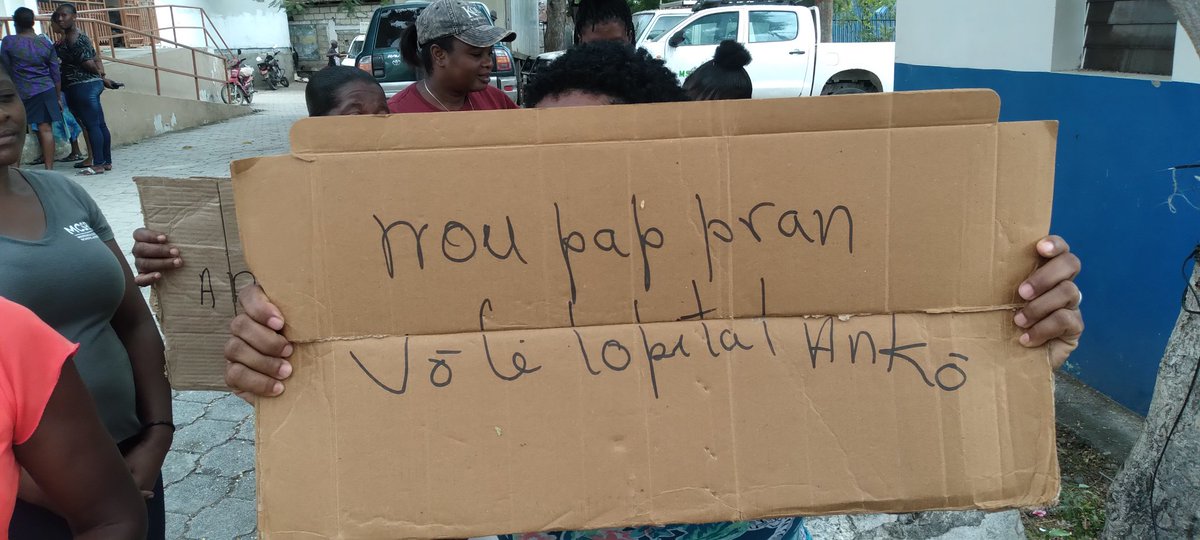 nou pap pran
Vōlè lopital Ankō